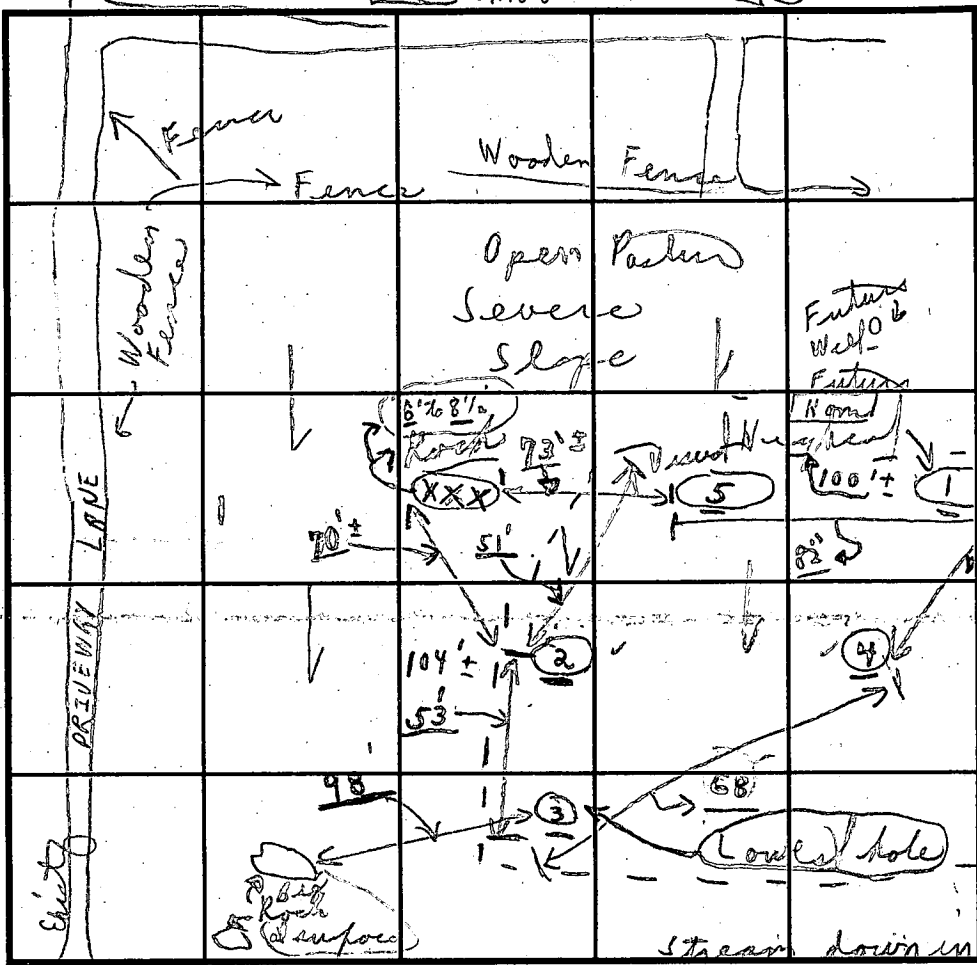 Fence
Fence
Wooden Fence
Wooden
Fence
Open Pasture
Severe
Slope
Future
Well
Future
Home
6' to 8'
Rock
73'±
Visual
XXX
5
100'±
1
70'±
51'
82'
DRIVEWAY LANE
104'±
2
4
53'
98
3
68
Lowest hole
Exist
Big
Rock
@ surface
Stream down in